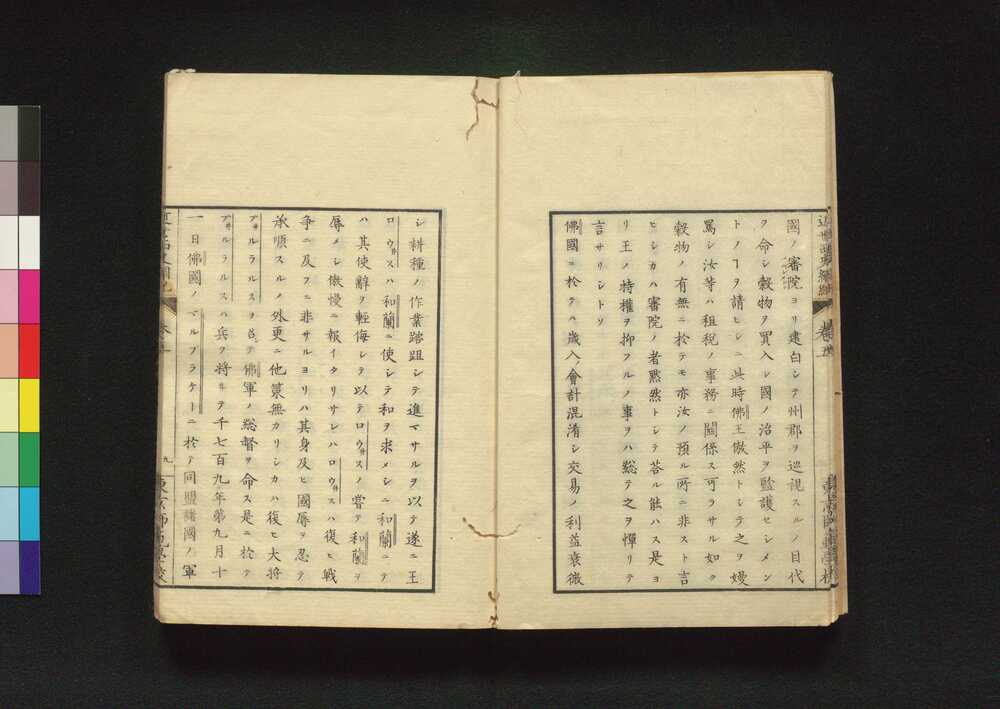 國ノ審院ヨリ建白シテ州郡ヲ巡視スルノ目代
ヲ命シ穀物ヲ買入レ國ノ治平ヲ監護セシメン
トノヿヲ請ヒシニ此時佛王傲然トシテ之ヲ嫚
罵シ汝等ハ租税ノ事務ニ関係ス可ラサル如ク
穀物ノ有無ニ於テモ亦汝ノ預ル所ニ非スト言
ヒシカハ審院ノ者黙然トシテ荅ル能ハス是ヨ
リ王ノ特權ヲ抑フルノ事ヲハ総テ之ヲ憚リテ
言サリシトソ
佛國ニ於テハ歳入ノ會計混淆シ交易ノ利益衰微
シ耕種ノ作業踏跙シテ進マサルヲ以テ遂ニ王
ロウ井スハ和蘭ニ使シテ和ヲ求メシニ和蘭ニテ
ハ其使辭ヲ輕侮シテ以テロウ井スノ嘗テ和蘭ヲ
辱メシ傲慢ニ報イタリサレハロウ井スハ復ヒ戰
争ニ及フニ非サルヨリハ其身及ヒ國辱ヲ忍テ
承順スルノ外更ニ他策無カリシカハ復ヒ大将
アウ井ルラルスヲ以テ佛軍ノ総督ヲ命ス是ニ於テ
アウ井ルラルスハ兵ヲ将ヰテ千七百九年第九月十
一日佛國ノマルプラケーニ於テ同盟諸國ノ軍
九